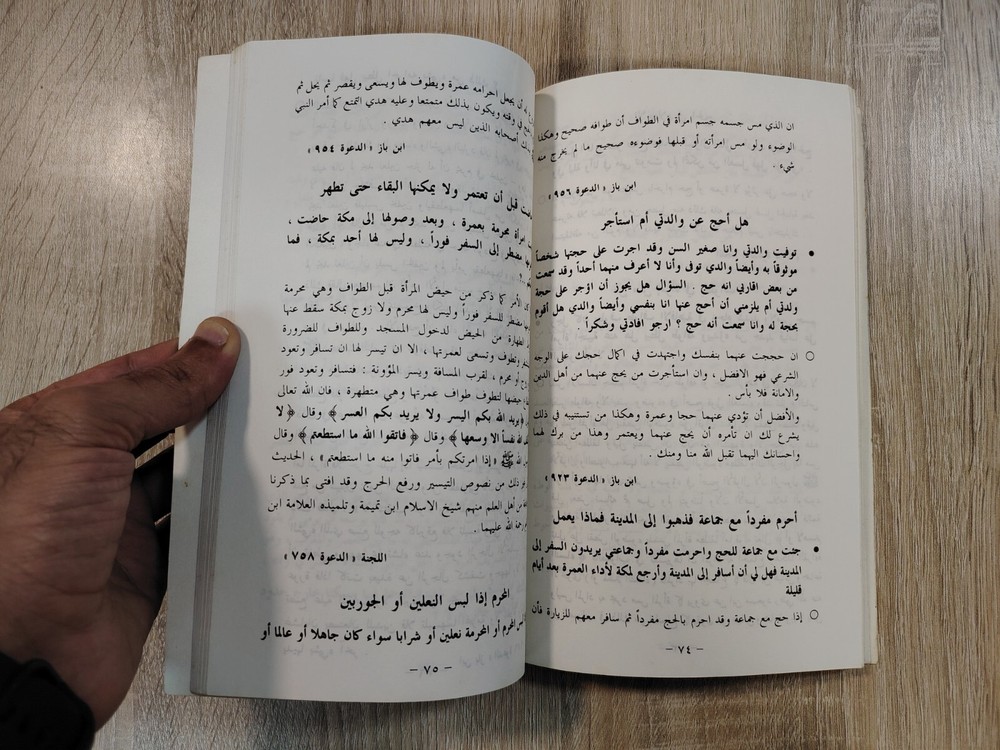 ان الذي مس جسمه جسم امرأة في الطواف أن طوافه صحيح وهكذا
الوضوء ولو مس امرأته أو قبلها فوضوءه صحيح ما لم يخرج منه
شيء .
ابن باز « الدعوة ٩٥٦ »
هل أحج عن والدتي أم استأجر
● توفيت والدتي وانا صغير السن وقد اجرت على حجتها شخصاً
موثوقاً به وأيضاً والدي توفى وأنا لا أعرف منهما أحداً وقد سمعت
من بعض اقاربي انه حج . السؤال هل يجوز أن اؤجر على حجة
ولدتي أم يلزمني أن أحج عنها انا بنفسي وأيضاً والدي هل أقوم
بحجة له وانا سمعت أنه حج ؟ ارجو افادتي وشكراً .
○ ان حججت عنهما بنفسك واجتهدت في اكمال حجك على الوجه
الشرعي فهو الافضل ، وان استأجرت من يحج عنهما من أهل الدين
والامانة فلا بأس .
والأفضل أن تؤدي عنهما حجا وعمرة وهكذا من تستنيبه في ذلك
يشرع لك ان تأمره أن يحج عنهما ويعتمر وهذا من برك لهما
واحسانك اليهما تقبل الله منا ومنك .
ابن باز « الدعوة ٩٢٣ »
أحرم مفرداً مع جماعة فذهبوا إلى المدينة فماذا يعمل
● جئت مع جماعة للحج واحرمت مفرداً وجماعتي يريدون السفر إلى
المدينة فهل لي أن أسافر إلى المدينة وأرجع لمكة لأداء العمرة بعد أيام
قليلة
○ إذا حج مع جماعة وقد احرم بالحج مفرداً ثم سافر معهم للزيارة فأن
– ٧٤ –
أن يجعل احرامه عمرة ويطوف لها ويسعى ويقصر ثم يحل ثم
في وقته ويكون بذلك متمتعا وعليه هدي التمتع كما أمر النبي
أصحابه الذين ليس معهم هدي .
ابن باز « الدعوة ٩٥٤ »
قبل أن تعتمر ولا يمكنها البقاء حتى تطهر
امرأة محرمة بعمرة ، وبعد وصولها إلى مكة حاضت ،
مضطر إلى السفر فوراً ، وليس لها أحد بمكة ، فما
الأمر كما ذكر من حيض المرأة قبل الطواف وهي محرمة
مضطر للسفر فوراً وليس لها محرم ولا زوج بمكة سقط عنها
الطهارة من الحيض لدخول المسجد وللطواف للضرورة
وتطوف وتسعى لعمرتها ، الا ان تيسر لها ان تسافر وتعود
أو محرم ، لقرب المسافة ويسر المؤونة : فتسافر وتعود فور
حيضها لتطوف طواف عمرتها وهي متطهرة ، فان الله تعالى
﴿ يريد الله بكم اليسر ولا يريد بكم العسر ﴾ وقال ﴿ لا
الله نفساً الا وسعها ﴾ وقال ﴿ فاتقوا الله ما استطعتم ﴾ وقال
الله ﷺ « إذا امرتكم بأمر فاتوا منه ما استطعتم » ، الحديث
ذلك من نصوص التيسير ورفع الحرج وقد افتى بما ذكرنا
من أهل العلم منهم شيخ الاسلام ابن تيمية وتلميذه العلامة ابن
رحمة الله عليهما .
اللجنة « الدعوة ٧٥٨ »
المحرم إذا لبس النعلين أو الجوربين
المحرم أو المحرمة نعلين أو شرابا سواء كان جاهلا أو عالما أو
– ٧٥ –